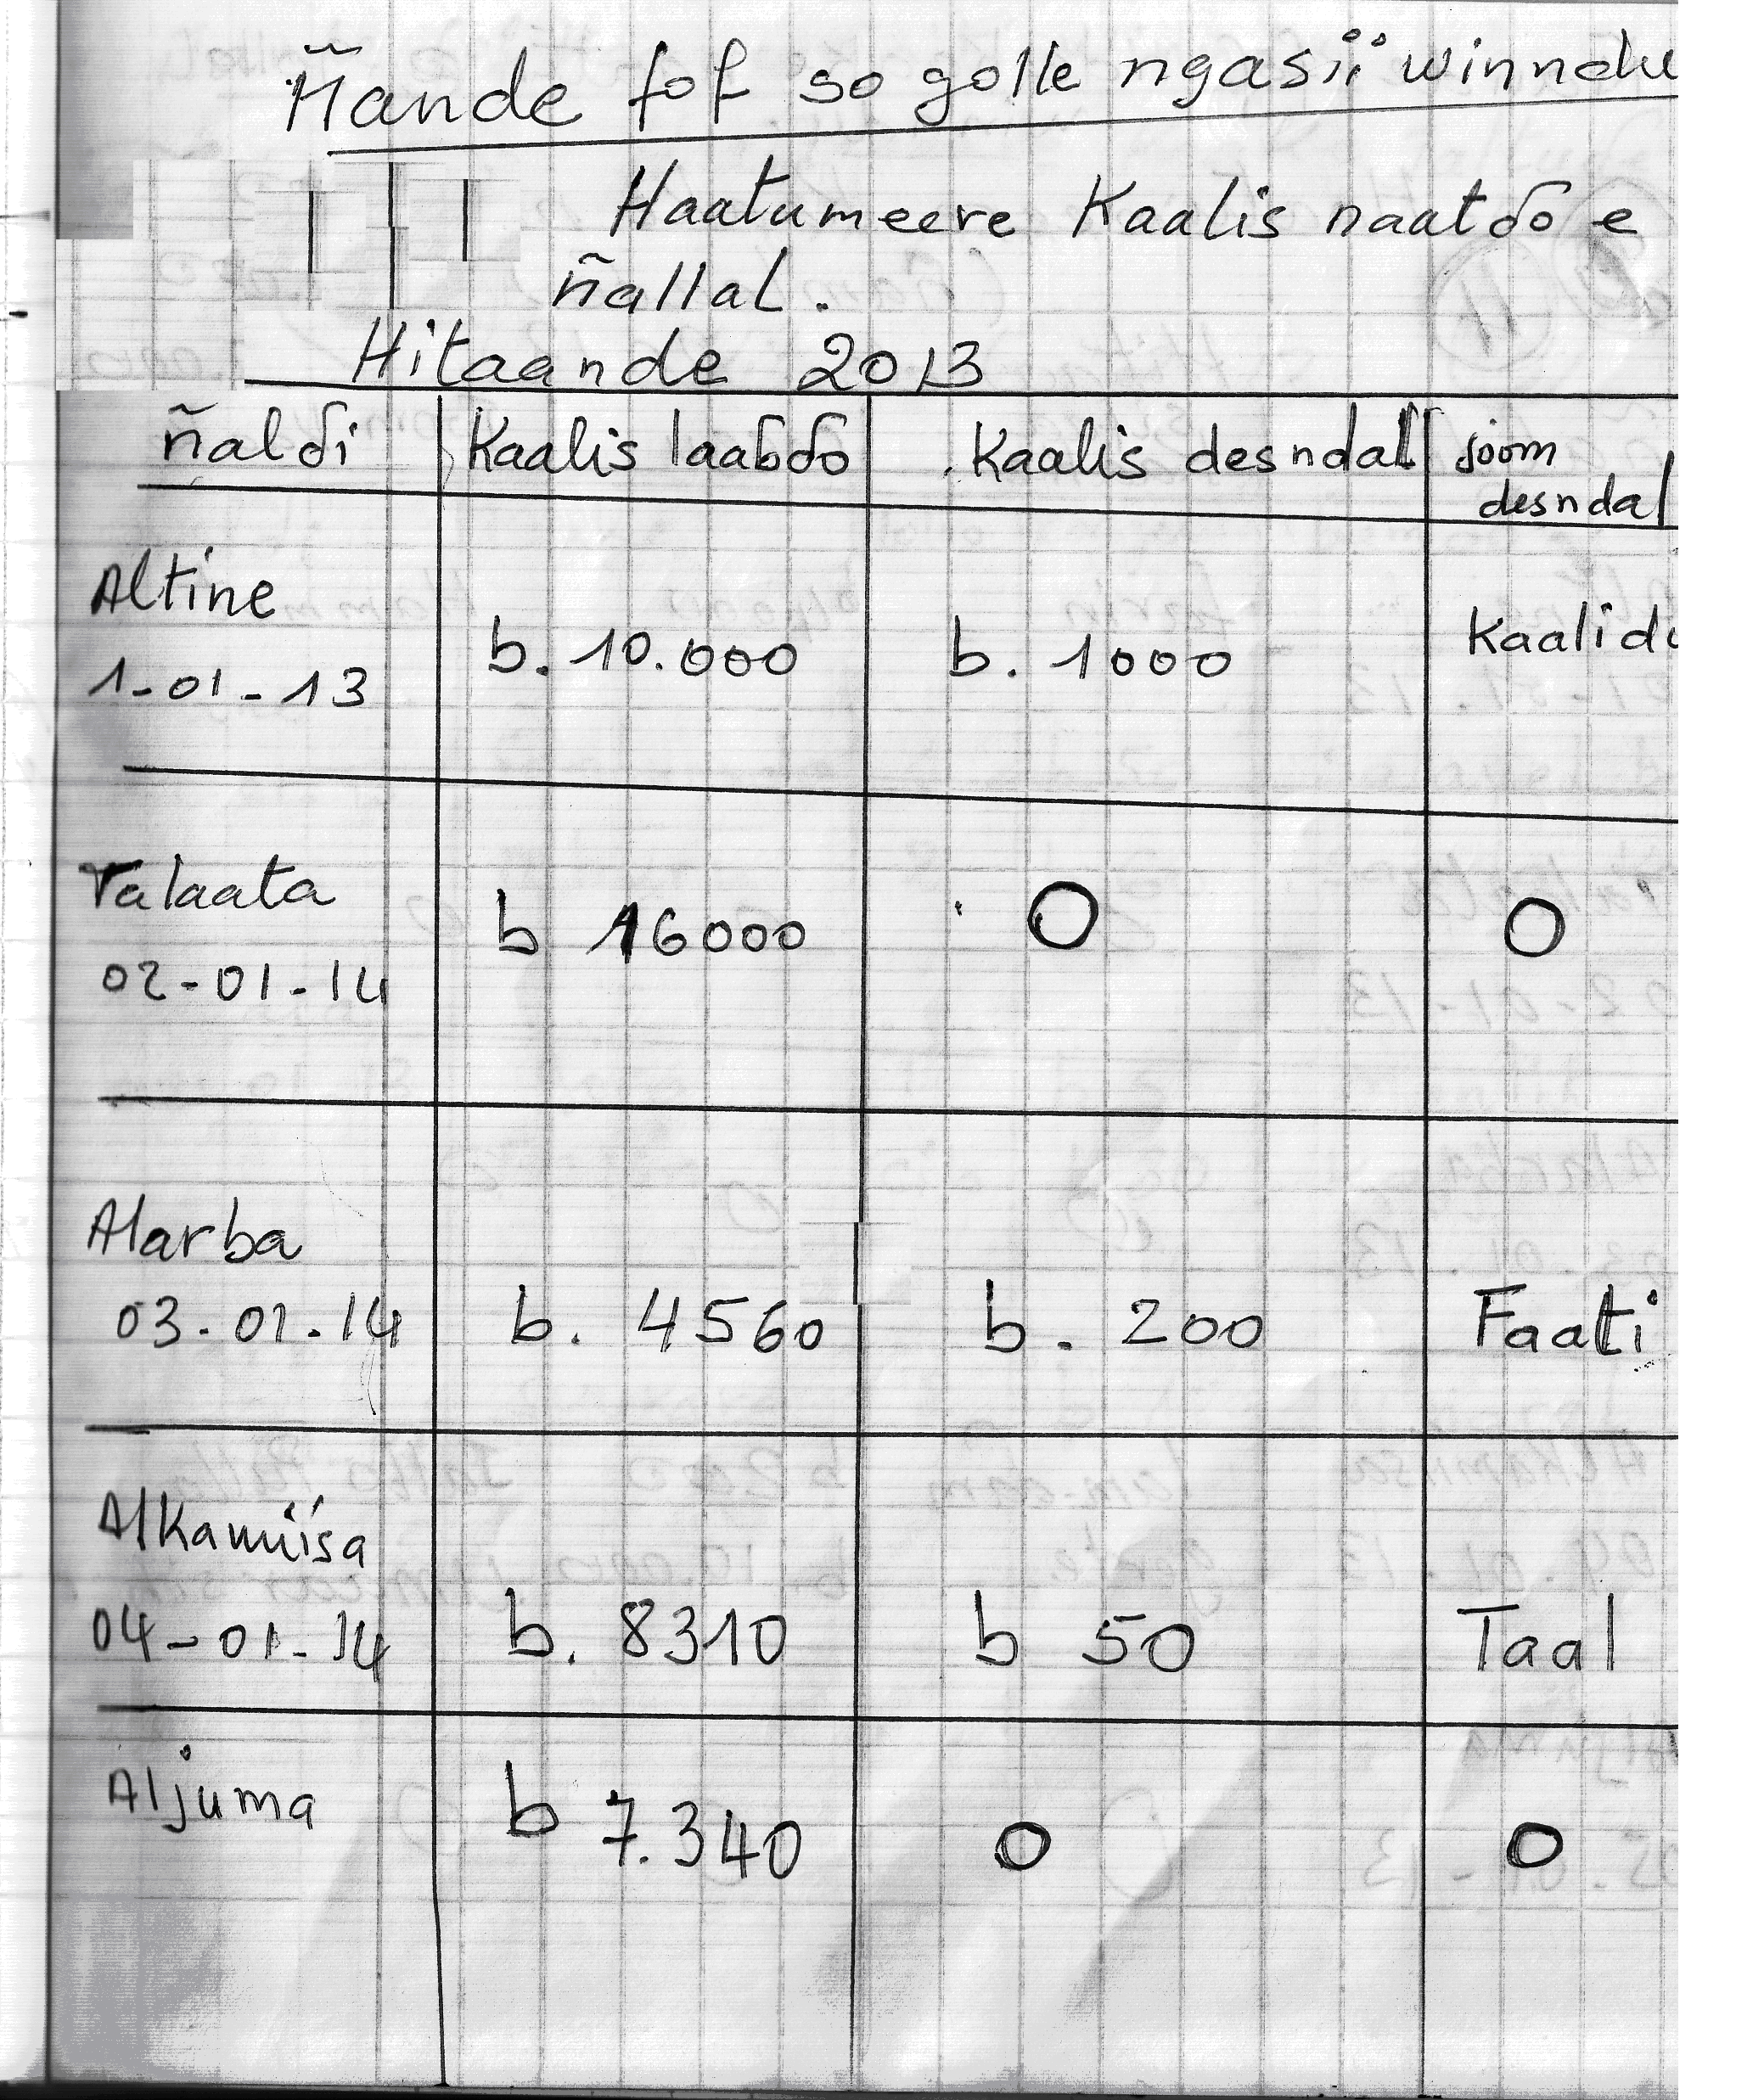 Ñande fof so golle ngasii winndu
Haatumeere Kaalis naatɗo e
ñallal.
Hitaande 2013
ñalɗi Kaalis laaɓɗo Kaalis desndal joom
desndal
Altine
1-01-13 b. 10.000 b. 1000 Kaalidu
Talaata
02-01-14 b 16000 0 0
Alarba
03-01-14 b. 4560 b. 200 Faati
Alkamiisa
04-01-14 b. 8310 b 50 Taal
Aljuma
b 7.340 0 0